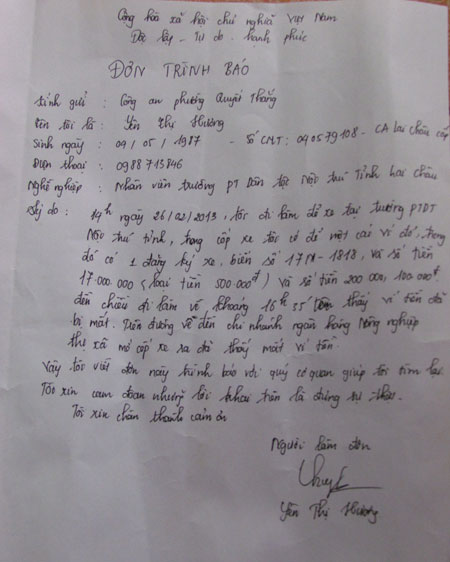 Cộng hòa xã hội chủ nghĩa Việt Nam
Độc lập - Tự do - hạnh phúc
ĐƠN TRÌNH BÁO
Kính gửi : Công an phường Quyết Thắng
Tên tôi là : Yên Thị Hương
Sinh ngày : 09/05/1987 - Số CMT: 090579108 - CA lai châu cấp
Điện thoại : 0988713846
Nghề nghiệp : Nhân viên trường PT Dân tộc Nội trú Tỉnh lai châu
Lý do : 14h ngày 26/02/2013, tôi đi làm để xe tại trường PTDT
Nội trú tỉnh, trong cốp xe tôi có để một cái ví đỏ, trong
đó có 1 đăng ký xe biển số 17N - 1818, và số tiền
17.000.000 (loại tiền 500.000đ) và số tiền 200.000, 100.000đ.
đến chiều đi làm về khoảng 16h35' thấy ví tiền đã
bị mất. Trên đường về đến chi nhánh ngân hàng Nông nghiệp
thị xã mở cốp xe ra đã thấy mất ví tiền.
Vậy tôi viết đơn này trình báo với quý cơ quan giúp tôi tìm lại.
Tôi xin cam đoan những lời khai trên là đúng sự thật.
Tôi xin chân thành cảm ơn
Người làm đơn
Yên Thị Hương